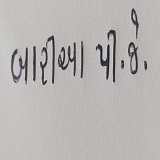 બારીઆ પી.જે.